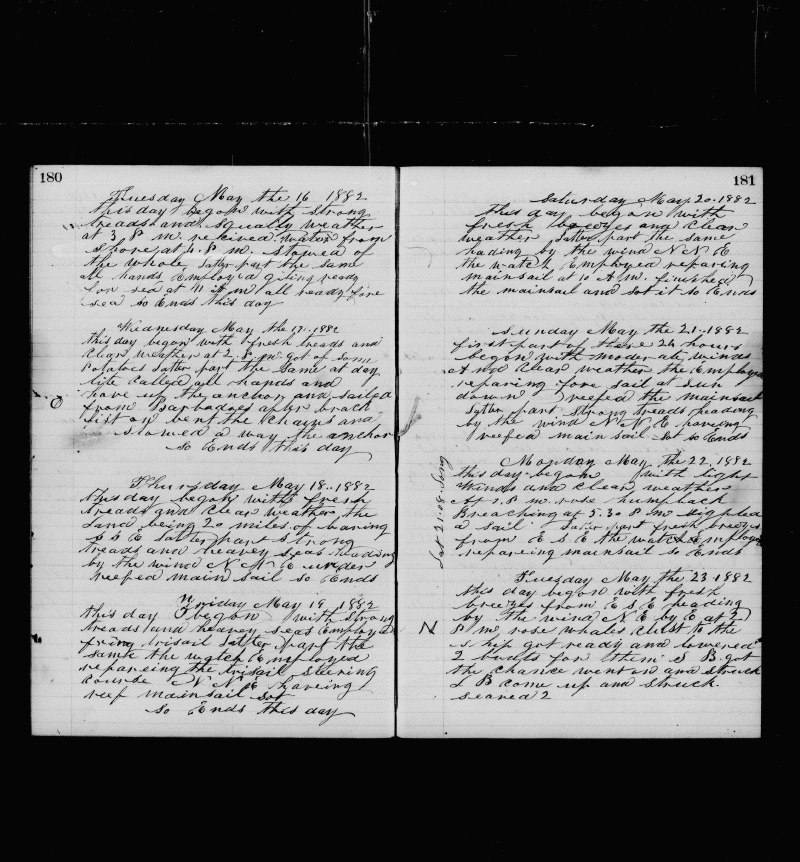 180
Tuesday May the 16 1882
this day begon with strong
treads and Squally weather
at 3. P m received water from
Shore at 4. P m. Stowed of
the whole Latter part the Same
all hands Employed giting ready
for sea at 11 m all ready fore
sea so Ends this day
Wednesday May the 17. 1882
this day begon with fresh treads and
Clear weather at 2. P. m got of some
Potatoes Latter part the Same at day
lite Called all hands and
have up the anchor and sailed
from Barbadoes after brack
fist on bent the Chayns and
stowed a way the anchor
so Ends this day
Thursday May 18. 1882
this day begon with fresh
treads and Clear weather the
Land being 20 miles of baring
S S E Latter part strong
treads and heavey seas heading
by the wind N N E under
reefed main sail so Ends
Friday May 19. 1882
this day begon with strong
treads and heavey seas Employed
trisail Latter part the
same the watch Employed
repareing the trisail steering
Course N N E haveing
reef mainsail sot
so Ends this day
181
Saturday May. 20. 1882
this day begon with
fresh breezes and Clear
weather Latter part the same
hading by the wind N N E
the watch Employed reparing
mainsail at 10 A. m. finished
the mainsail and sot it so Ends
Sunday May the 21. 1882
first part of these 24 hours
begon with moderate winds
And Clear weather the Employed
reparing fore sail at Sun
down reefed the mainsail
Latter part strong treads heading
by the wind N N E haveing
reefed main sail sot so Ends
Monday May the 22. 1882
this day begon with light
Winds and Clear weather
At P m rose humpback
Breaching at 5. 30 P m sighted
a sail Latter part fresh breezes
from E S E the watch Employed
repareing mainsail so Ends
Lat 21:08 Long
Tuesday May the 23 1882
this day begon with fresh
breezes from E S E heading
by the wind N E by E at 2
P m rose whales Clost to the
ship got ready and lowered
2 boats for them S B. got
the Chance went on and struck
L B Come up and struck.
seaved 2
N